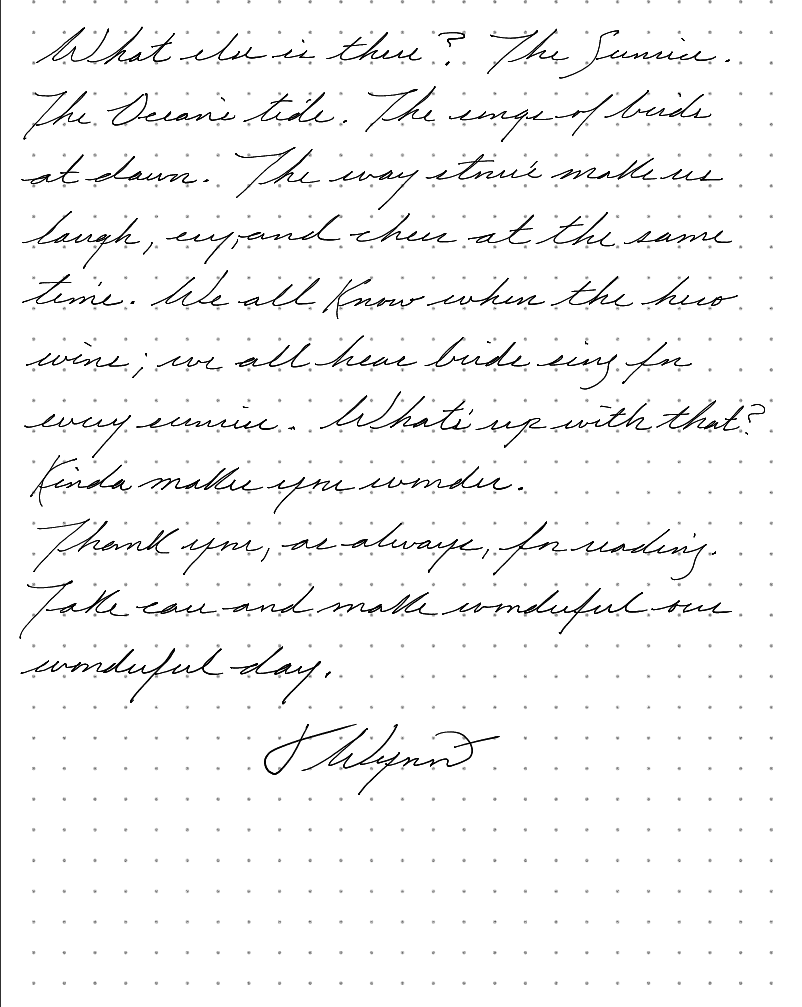 What else is there? The Sunrise.
The Ocean's tide. The songs of birds
at dawn. The way stories make us
laugh, cry, and cheer at the same
time. We all know when the hero
wins; we all hear birds sing for
every sunrise. What's up with that?
Kinda makes you wonder.
Thank you, as always, for reading.
Take care and make wonderful our
wonderful day.
J Wynn